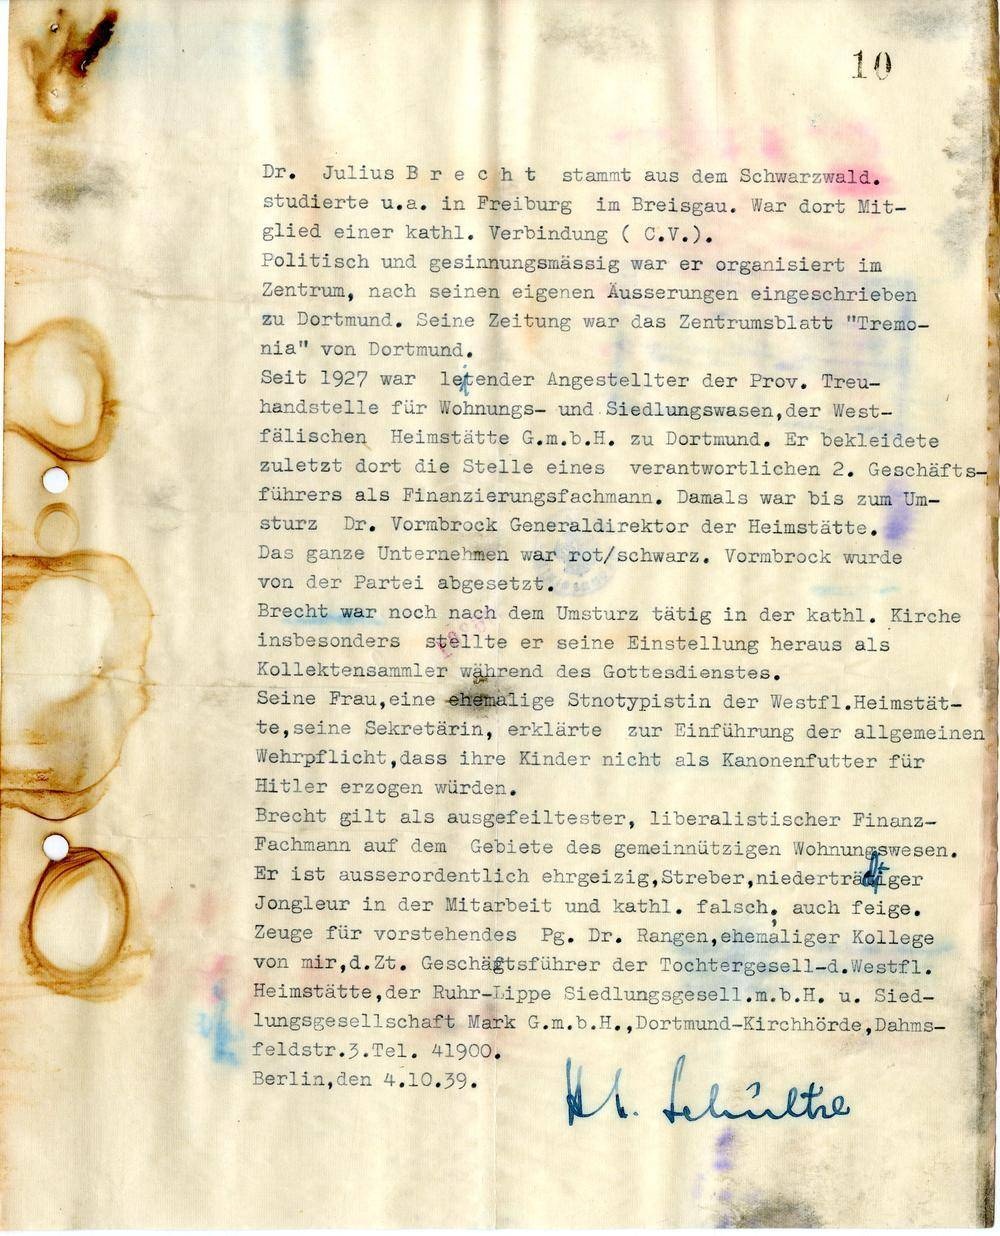 10
Dr. Julius B r e c h t stammt aus dem Schwarzwald.
studierte u.a. in Freiburg im Breisgau. War dort Mit-
glied einer kathl. Verbindung ( C.V.).
Politisch und gesinnungsmässig war er organisiert im
Zentrum, nach seinen eigenen Äusserungen eingeschrieben
zu Dortmund. Seine Zeitung war das Zentrumsblatt "Tremo-
nia" von Dortmund.
Seit 1927 war leitender Angestellter der Prov. Treu-
handstelle für Wohnungs- und Siedlungswasen,der West-
fälischen Heimstätte G.m.b.H. zu Dortmund. Er bekleidete
zuletzt dort die Stelle eines verantwortlichen 2. Geschäfts-
führers als Finanzierungsfachmann. Damals war bis zum Um-
sturz Dr. Vormbrock Generaldirektor der Heimstätte.
Das ganze Unternehmen war rot/schwarz. Vormbrock wurde
von der Partei abgesetzt.
Brecht war noch nach dem Umsturz tätig in der kathl. Kirche
insbesonders stellte er seine Einstellung heraus als
Kollektensammler während des Gottesdienstes.
Seine Frau,eine ehemalige Stnotypistin der Westfl.Heimstät-
te,seine Sekretärin, erklärte zur Einführung der allgemeinen
Wehrpflicht,dass ihre Kinder nicht als Kanonenfutter für
Hitler erzogen würden.
Brecht gilt als ausgefeiltester, liberalistischer Finanz-
Fachmann auf dem Gebiete des gemeinnützigen Wohnungswesen.
Er ist ausserordentlich ehrgeizig,Streber,niederträchtiger
Jongleur in der Mitarbeit und kathl. falsch, auch feige.
Zeuge für vorstehendes Pg. Dr. Rangen,ehemaliger Kollege
von mir,d.Zt. Geschäftsführer der Tochtergesell-d.Westfl.
Heimstätte,der Ruhr-Lippe Siedlungsgesell.m.b.H. u. Sied-
lungsgesellschaft Mark G.m.b.H.,Dortmund-Kirchhörde,Dahms-
feldstr.3.Tel. 41900.
Berlin,den 4.10.39.
Schültze